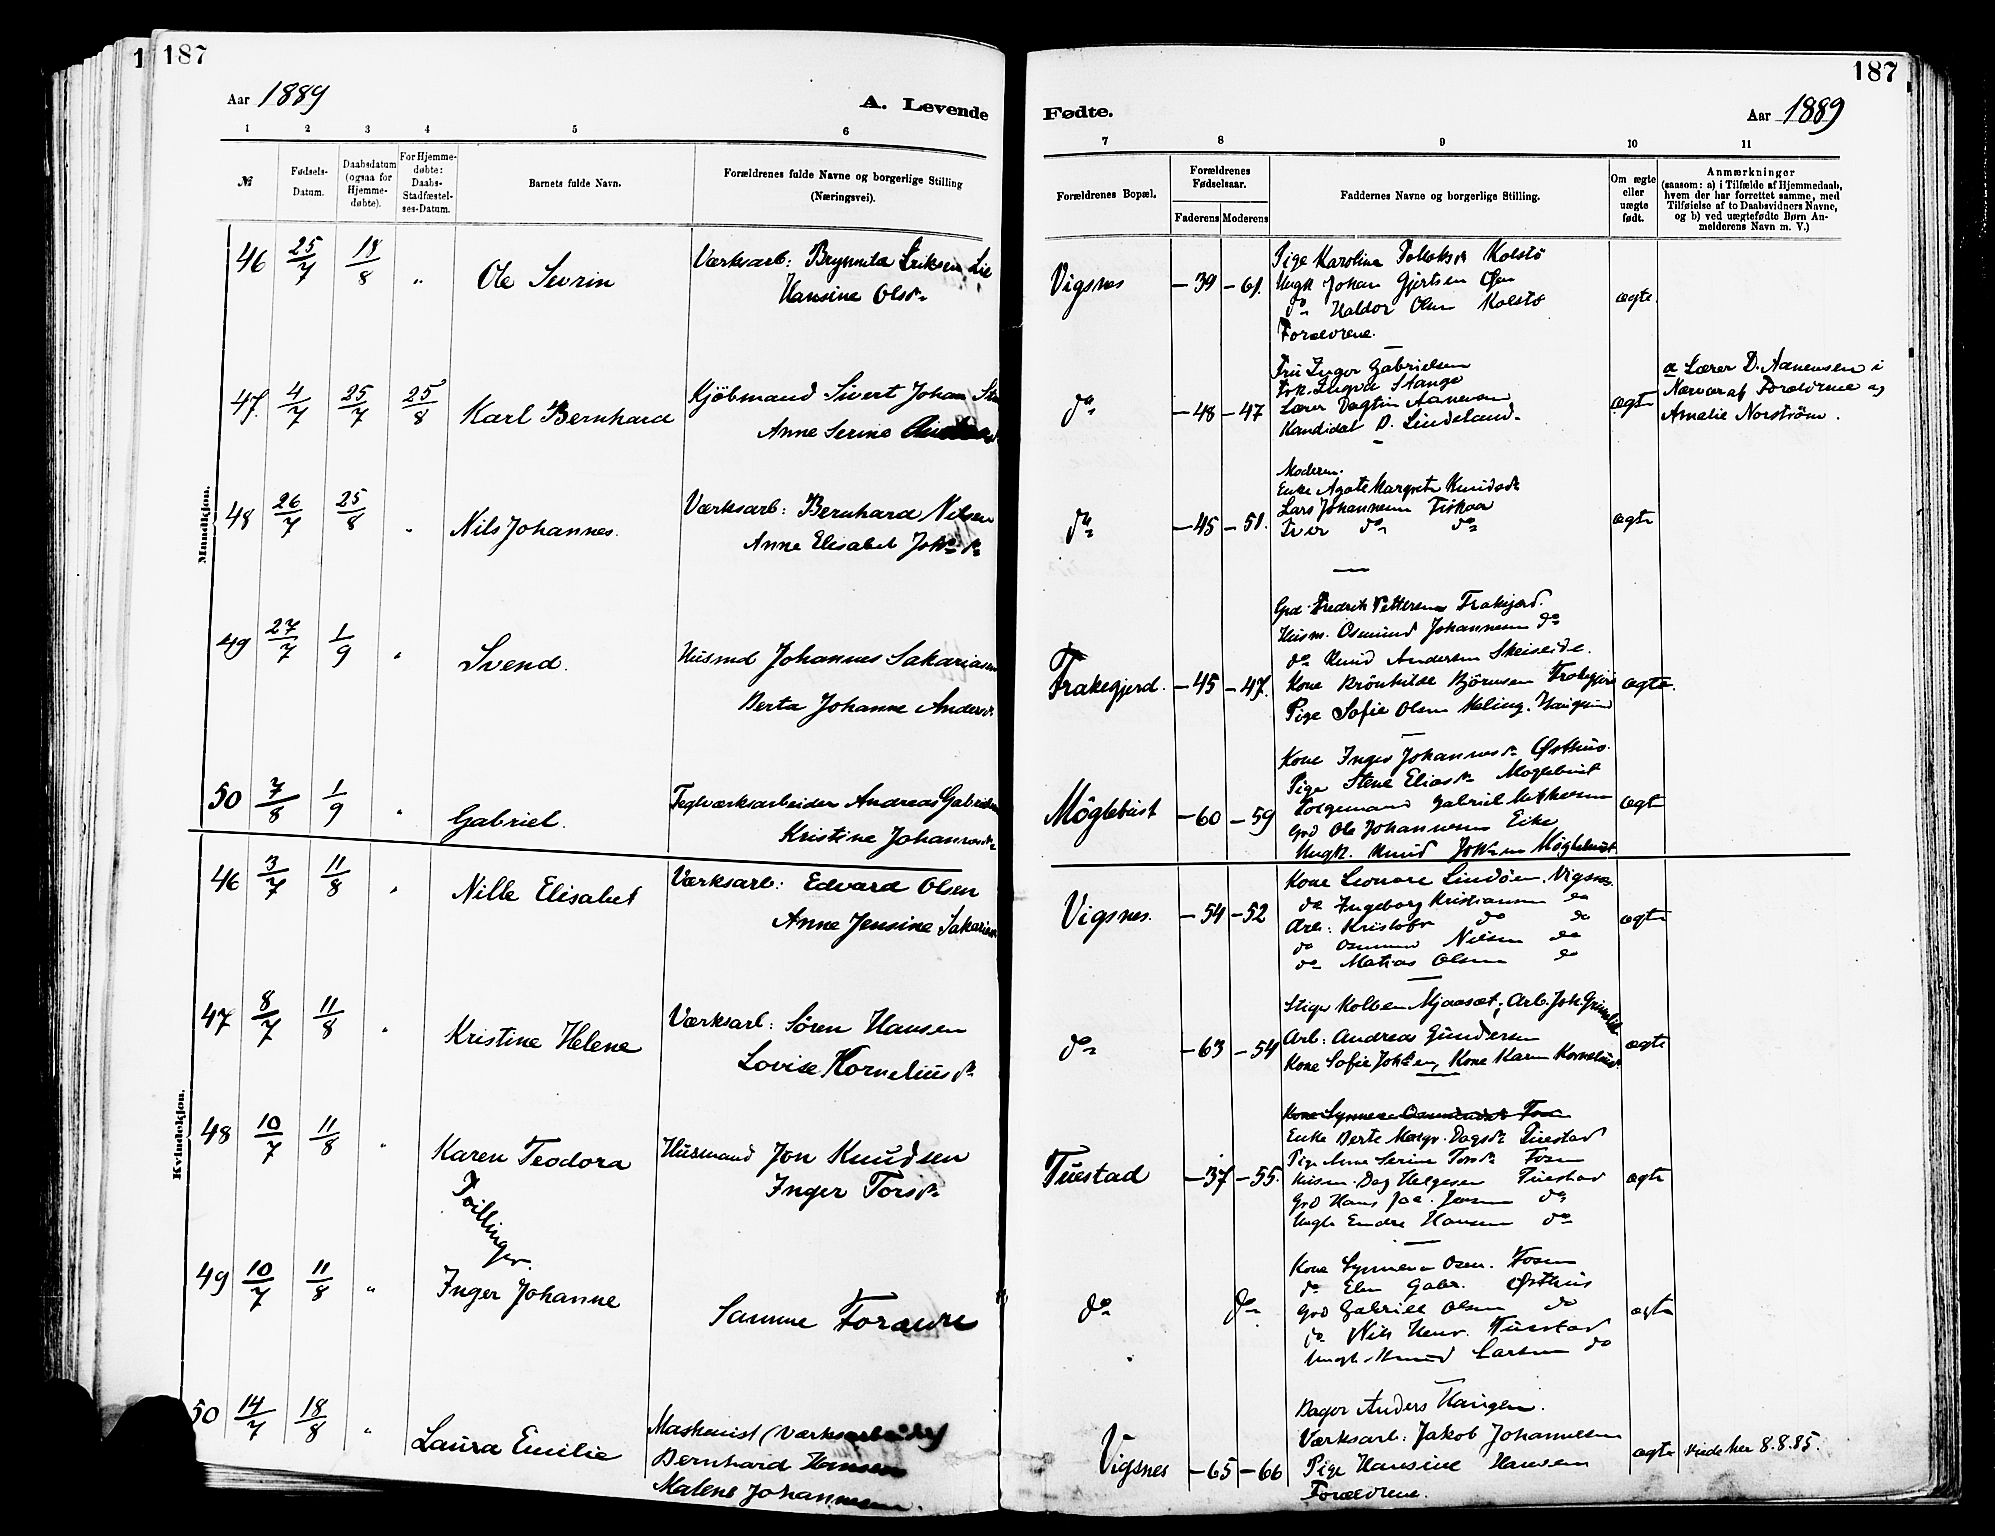 187
Aar 1889
A. Levende
1 2 3 4 5 6
№
Fødsels-Datum.
Daabsdatum (ogsaa for Hjemme-døbte).
For Hjemme-døbte: Daabs-Stadfæstel-ses-Datum.
Barnets fulde Navn.
Forældrenes fulde Navne og borgerlige Stilling
(Næringsvei).
Mandkjøn.
46 25/7 "
Ole Sevrin
Værksarb: Eriksen Lie
Hansine Olsdr
47. 4/7 25/7 25/8
Karl Bernhard
Kjöbmand Sivert Johan
Anne Serine
48 26/7 25/8 "
Nils Johannes.
Værksarb: Bernhard Nilsen
Anne Elisabet
49 27/7 1/9 "
Svend.
Husmd Johannes Sakariasen
Berta Johanne Andersdr
50 7/8 1/9 "
Gabriel.
Teglværksarbeider Andreas Gabrielsen
Kristine Johannesdr
Kvindekjøn.
46 3/7 11/8 "
Nille Elisabet
Værksarb: Edvard Olsen
Anne Jensine
47 8/7 11/8 "
Kristine Helene
Værksarb: Søren Hansen
Lovise Korneliusdr
48 10/7 11/8 "
Karen Teodora
Husmand Jon Knudsen
Inger Torsdr
Tvillinger
49 10/7 11/8 "
Inger Johanne
Samme Forældre
50 14/7 18/8 "
Laura Emilie
Maskinist (Værksarbeider)
Bernhard Hansen
Malene Johannesen.
187
Fødte.
Aar 1889
7 8 9 10 11
Forældrenes Bopæl.
Forældrenes Fødselsaar.
Faderens Moderens
Faddernes Navne og borgerlige Stilling.
Om ægte eller uægte født.
Anmærkninger
(saasom: a) i Tilfælde af Hjemmedaab,
hvem der har forrettet samme, med
Tilføielse af to Daabsvidners Navne,
og b) ved uægtefødte Børn An-
melderens Navn m. V.)
Vigsnes -39 -61.
Pige Karoline Kolstö
Ungk Johan Gjertsen
do Haldor Olsen Kolstö
Forældrene.
ægte.
do -48 -47
Fru Inger Gabrielsen
Stange
Lærer Aanensen
Kandidat D. Lindeland.
ægte
a Lærer D. Aanensen i
Nærver af Forældrene og
Amalie Norström.
do -45 -51.
Moderen.
Enke Agate Margrete Knudsdr
Lars Johannesen
Iver do do
ægte
Frakegjerd. -45 -47.
Grd. Fredrik Pettersen Frakegjerd.
Husm. Osmund Johannesen do
do Knud Andersen Skeiseide.
Kone Brönhilde Björnsen
Pige Sofie Olsen
ægte.
Möglebust -60 -59
Kone Inger Johannesdr Østhus.
Pige Stene Eliasdr Möglebust
Gabriel
Grd Ole Johannesen Eike
Ungk. Knud Möglebust
ægte
Vigsnes. -54 -52
Kone Leonore Vigsnes.
do Ingeborg Kristiansen do
Arb: Kristofer do do
do Osmund Nilsen do
do Matias Olsen do
ægte
do -63 -54
Stiger Kolben Arb.
Arb: Andreas Gundersen
Kone Sofie Kone Karen
ægte
Tuestad -37 -55.
Kone Synneve
Enke Berte Margr. Dagsdr Tuestad
Pige Anne Serine Torsdr Fosen
Husm. Dag Helgesen Tuestad
Grd Hans Jac. Jensen do
Ungk Endre Hansen do
ægte
do do
Kone Synneve Fosen
do Elen Gabr. Østhus
Grd Gabriel Olsen do
do Nils Henr. Tuestad
Ungk. Knud Larsen do
ægte
Vigsnes -65 -66
Bager Anders Haugen.
Værksarb: Jakob Johannesen
Pige Hansine Hansen
Forældrene.
ægte
8.8.85.